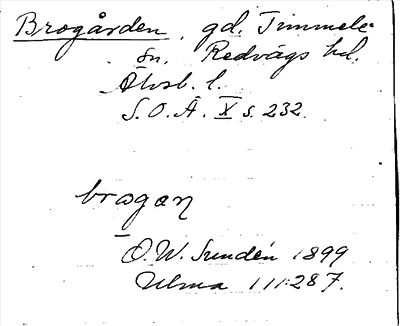 Brogården, gd. Timmele
sn. Redvägs hd.
Älvsb. l.
S. O. Ä. X s. 232.
brogan
O. W. Sundén 1899
Ulma 111:287.